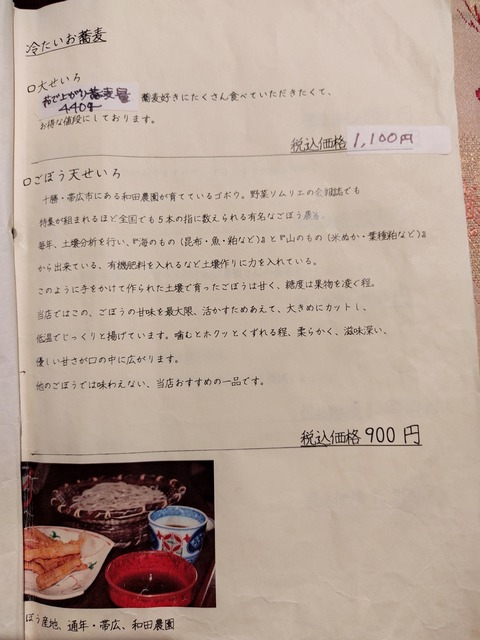 冷たいお蕎麦
□大せいろ
茹で上がり蕎麦量 蕎麦好きにたくさん食べていただきたくて、
440g
お得な値段にしております。
税込価格 1,100円
□ごぼう天せいろ
十勝・帯広市にある和田農園が育てているゴボウ。野菜ソムリエの全雑誌でも
特集が組まれるほど全国でも5本の指に数えられる有名なごぼう農園。
毎年、土壌分析を行い、『海のもの(昆布・魚・粕など)』と『山のもの(米ぬか・葉種粕など)』
から出来ている、有機肥料を入れるなど土壌作りに力を入れている。
このように手をかけて作られた土壌で育ったごぼうは甘く、糖度は果物を凌ぐ程。
当店ではこの、ごぼうの甘味を最大限、活かすためあえて、大きめにカットし、
低温でじっくりと揚げています。噛むとホクッとくずれる程、柔らかく、滋味深い、
優しい甘さが口の中に広がります。
他のごぼうでは味わえない、当店おすすめの一品です。
税込価格 900円
ぼう産地、通年・帯広、和田農園